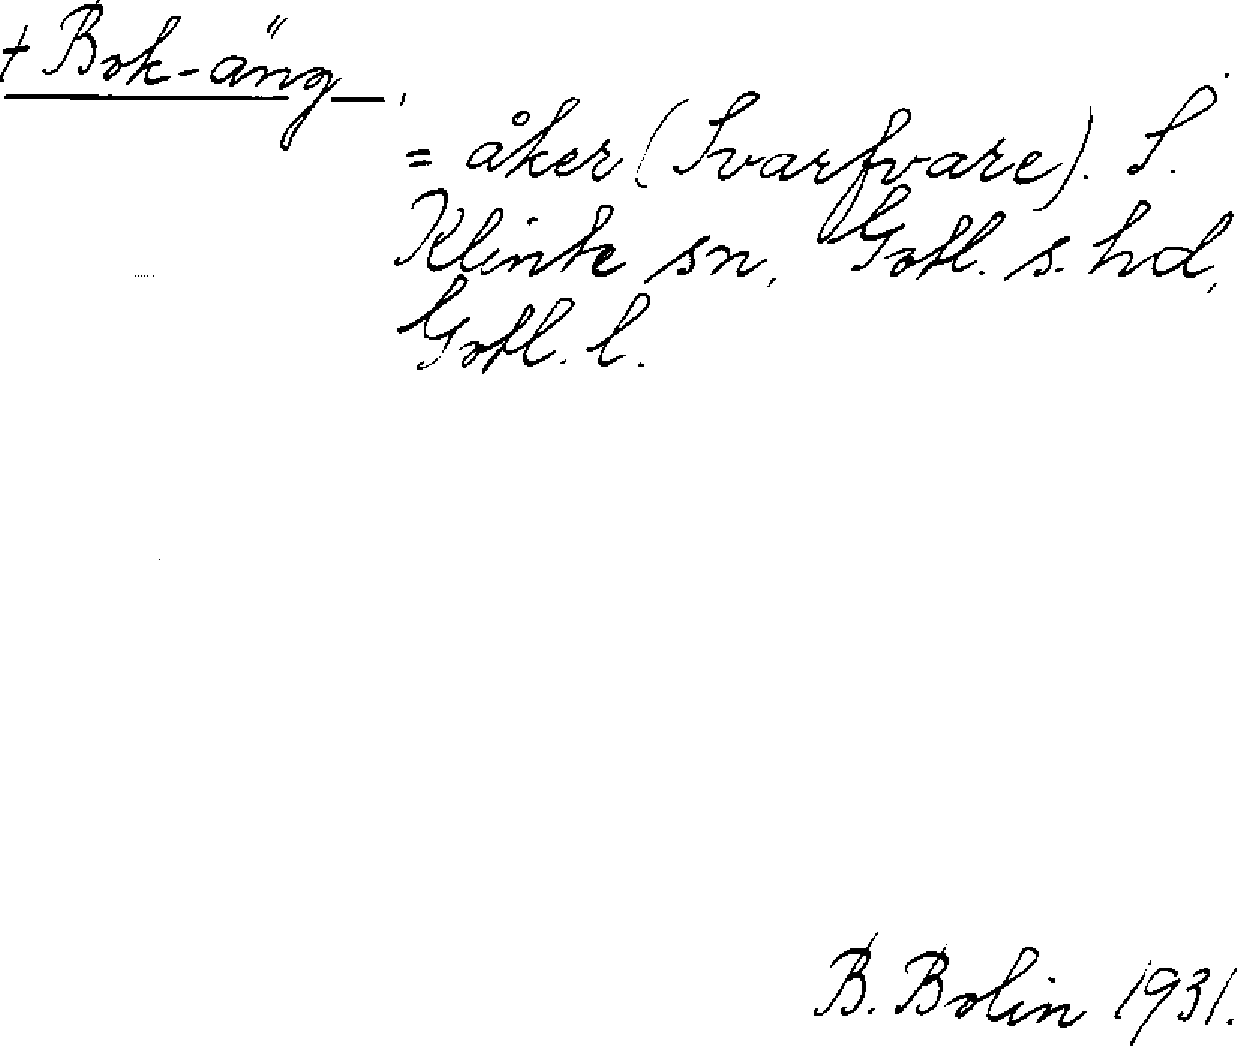 + Bok-äng
= åker (Svarfvare). S.
Klinte sn, Gotl. s. hd,
Gotl. l.
B. Bolin 1931.